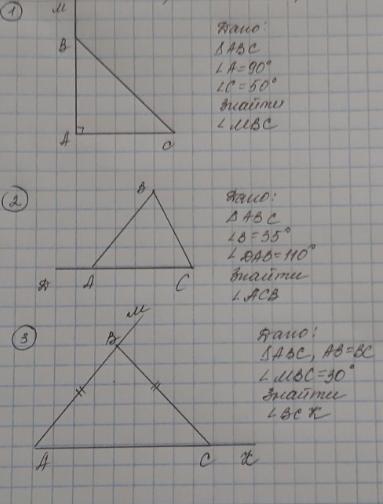 1
M
B
A
C
Дано:
ΔABC
∠A=90°
∠C=50°
Знайти
∠MBC
2
B
D
A
C
Дано:
ΔABC
∠B=35°
∠DAB=110°
Знайти
∠ACB
3
M
B
A
C
K
Дано:
ΔABC, AB=BC
∠MBC=30°
Знайти
∠BCK